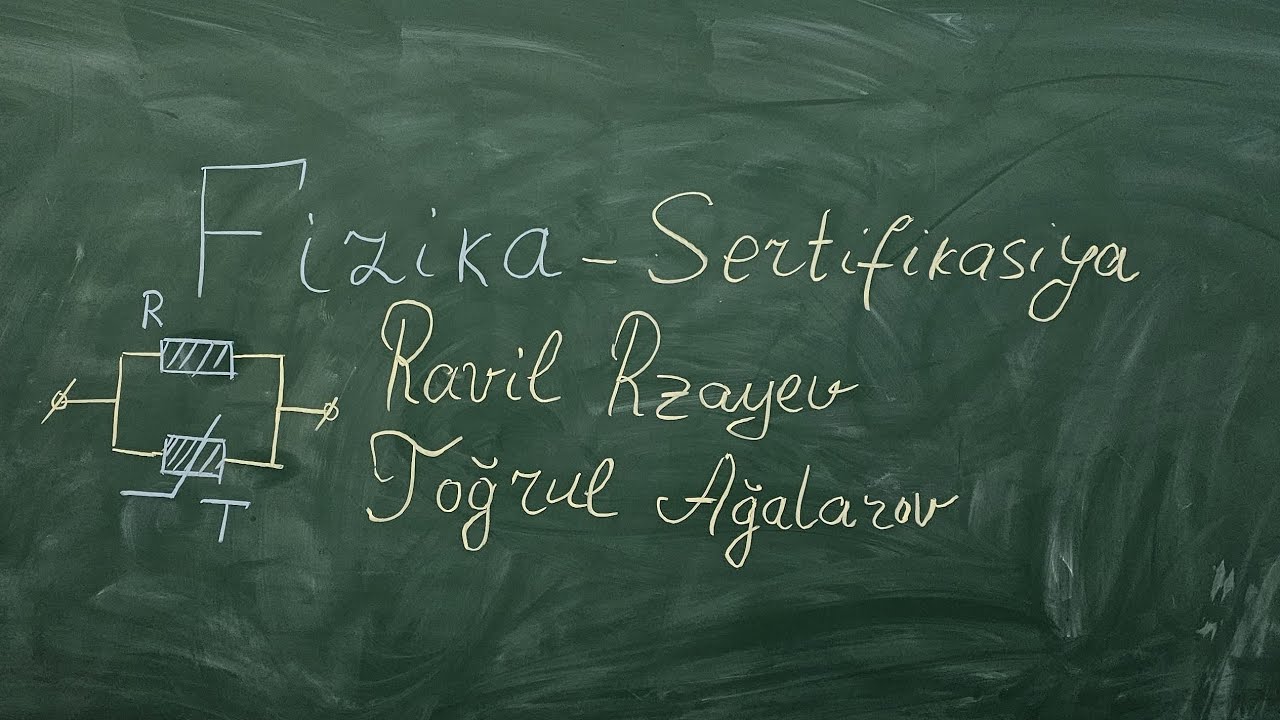 Fizika - Sertifikasiya
R
Ravil Rzayev
Toğrul Ağalarov
T